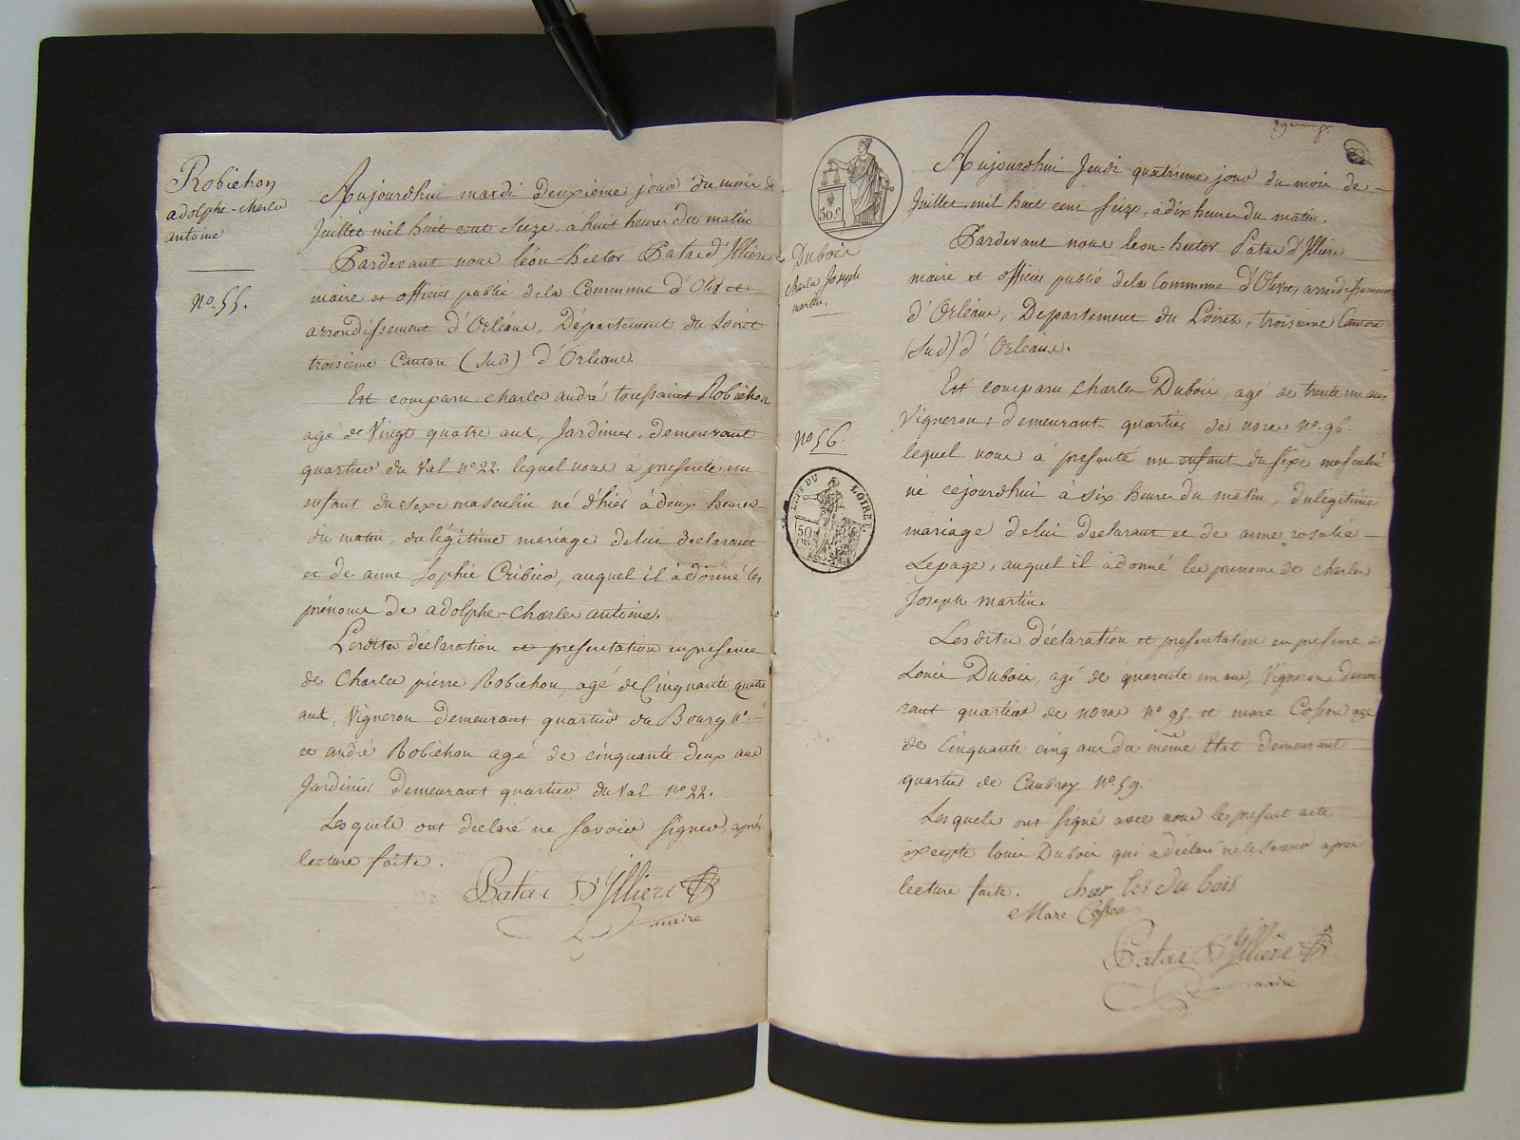 Robichon
adolphe-charles
antoine
No. 55.
Aujourdhui mardi deuxieme jour du mois de
Juillet mil huit cent seize, à huit heures du matin
Pardevant nous léon-hector Patas d'Illiers
maire et officier public de la Commune d'Olivet
arrondissement d'Orléans, Département du Loiret
troisieme Canton (Sud) d'Orleans.
Est comparu charles andré toussaint Robichon
agé de Vingt quatre ans, Jardinier, demeurant
quartier du Val no. 22. lequel nous à presenté un
enfant du sexe masculin né d'hier à deux heures
du matin, du légitime mariage de lui declarant
et de anne Sophie auquel il à donné les
prénoms de adolphe-Charles antoine.
Lesdites déclaration et presentation en presence
de Charles pierre Robichon, agé de Cinquante quatre
ans, Vigneron demeurant quartier du Bourg no.
et andré Robichon agé de cinquante deux ans
Jardinier demeurant quartier du Val no. 22.
Lesquels ont declaré ne savoir signer, après
lecture faite.
Patas d'Illiers
maire
30 c
Dubois
charles Joseph
martin.
No. 56.
DEPT. DU LOIRET
50
Aujourdhui Jeudi quatrieme jour du mois de
Juillet mil huit cent seize, à dix heures du matin.
Pardevant nous léon-hector Patas d'Illiers
maire et officier public de la Commune d'Olivet, arrondissement
d'Orléans, Departement du Loiret, troisieme Canton
(Sud) d'Orleans.
Est comparu Charles Dubois, agé de trente un ans
Vigneron, demeurant quartier de nore no. 96.
lequel nous à presenté un enfant du sexe masculin
né cejourdhui à six heures du matin, du légitime
mariage de lui declarant et de anne rosalie
Lepage, auquel il à donné les prenoms de charles
Joseph martin.
Lesdites déclaration et presentation en presence de
Louis Dubois, agé de quarente un ans, Vigneron demeu-
rant quartier de nore no. 95. et marc agé
de Cinquante cinq ans du même Etat demeurant
quartier de Caubray no. 59.
Lesquels ont signé avec nous le present acte
excepté louis Dubois qui à declaré ne le savoir après
lecture faite. char les du bois
Marc
Patas d'Illiers
maire